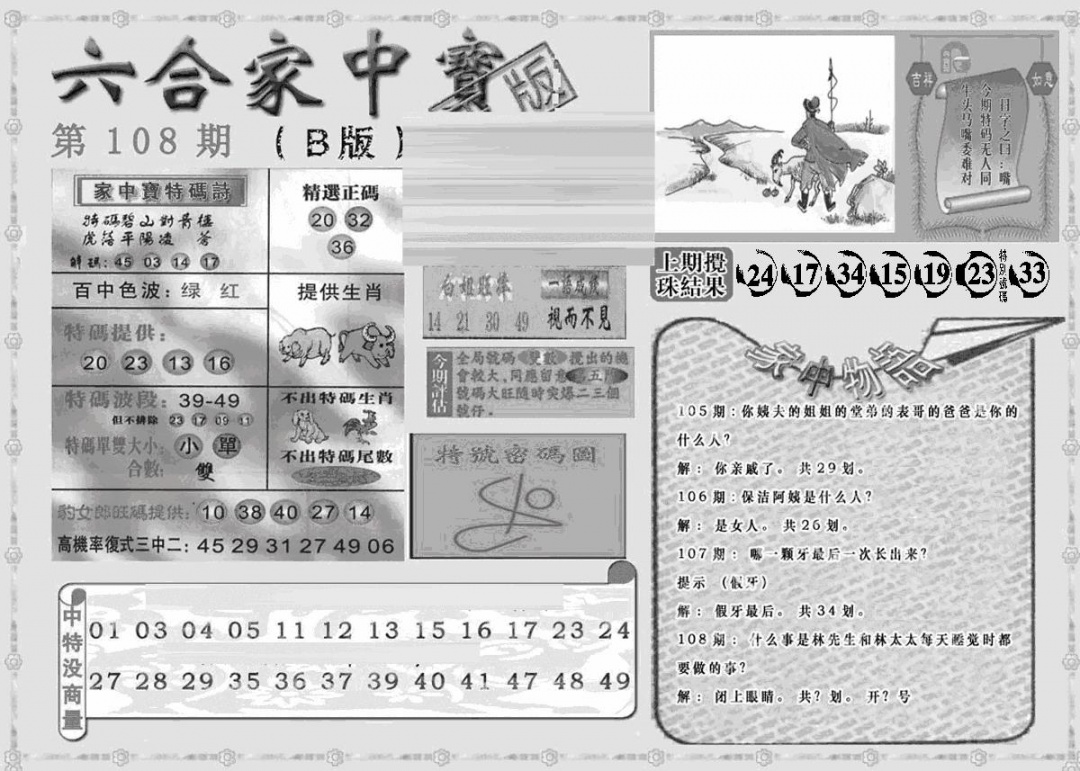 六合家中寶
版
第 108 期 （B版）
家中寶特碼詩
特碼碧山對青樓
虎落平陽凌 苍
解碼：45 03 14 17
百中色波：绿 红
特碼提供：
20 23 13 16
特碼波段：39-49
但不排除 23 17 09 11
特碼單雙大小：小 單
合數：雙
精選正碼
20 32
36
提供生肖
不出特碼生肖
不出特碼尾數
豹女郎旺碼提供：10 38 40 27 14
高機率復式三中二：45 29 31 27 49 06
白姐旺棒
14 21 30 49
視而不見
今期評估
全局號碼 雙數 攪出的機
會較大，同應留意 第五
號碼大旺隨時突爆二三個
號仔．
特號密碼圖
吉祥
如意
一日字之曰：嘴
今期特码无人同
牛头马嘴委难对
上期攪
珠結果
24 17 34 15 19 23 特別號碼 33
家中物語
105期：你姨夫的姐姐的堂弟的表哥的爸爸是你的
什么人？
解： 你亲戚了。 共29划。
106期：保洁阿姨是什么人？
解： 是女人。 共26划。
107期： 哪一颗牙最后一次长出来？
提示 （假牙）
解： 假牙最后。 共34划。
108期： 什么事是林先生和林太太每天睡觉时都
要做的事？
解： 闭上眼睛。 共？划。 开？号
中特没商量
01 03 04 05 11 12 13 15 16 17 23 24
27 28 29 35 36 37 39 40 41 47 48 49